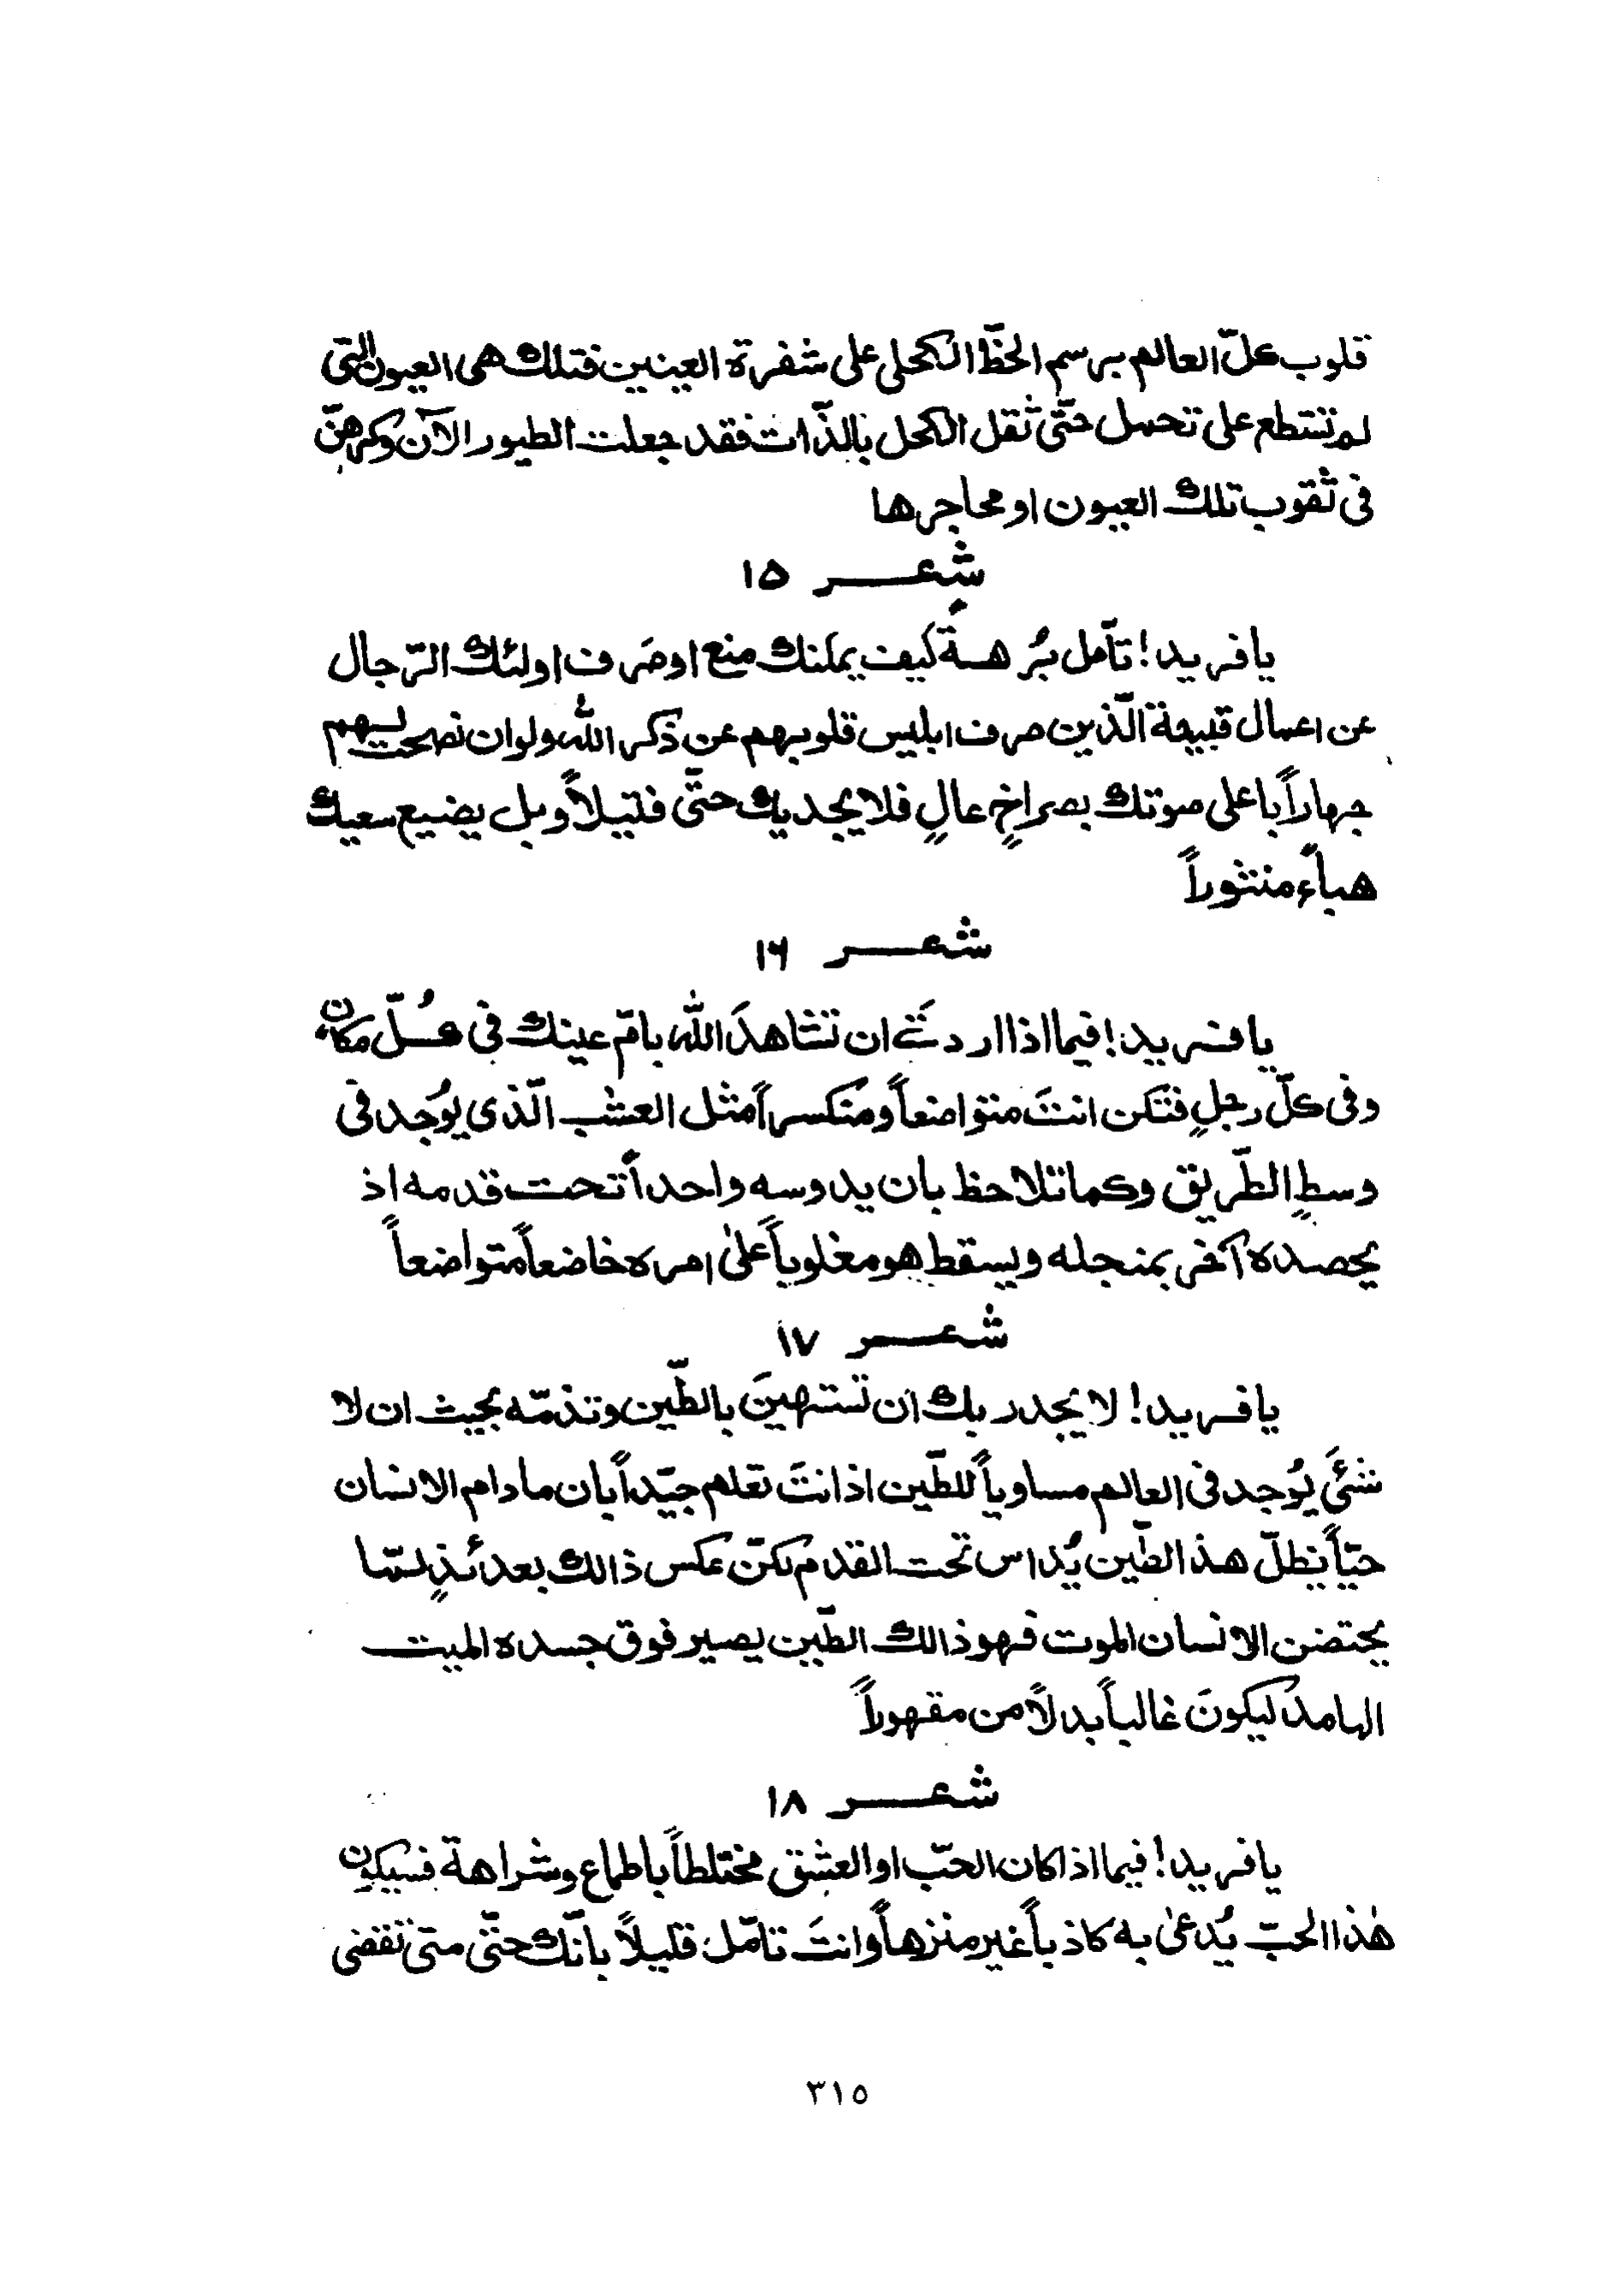 قلوب كلّ العالم برسم الخطّ الكحلى على شفرة العينين فتلك هى العيون الّتى
لم تنتطع على تحمل حتّى ثقل الكحل بالذّات فقد جعلت الطيور الآن وكرهنّ
فى ثقوب تلك العيون او محاجرها
شعر ١٥
يا فريد! تأمل بُرهـةً كيف يمكنك منع او صَرف اولئك الرّجال
عن اعمال قبيحة الّذين صرف ابليس قلوبهم عن ذكر الله ولو ان نصحت لهم
جهاراً باعلى صوتك بصراخٍ عالٍ فلا يجديك حتّى فتيلاً وبل يضيع سعيك
هباءً منثوراً
شعر ١٦
يا فريد! فيما اذا اردتَ ان تشاهدَ الله بامّ عينك فى كُلّ مكان
وفى كلّ رجلٍ فتكن انتَ متواضعاً ومُنكسراً مثل العشب الّذى يُوجد فى
وسطِ الطّريق وكما تلاحظ بان يدوسه واحداً تحت قدمه اذ
يحصده آخر بمنجله ويسقط هو مغلوباً علىٰ امره خاضعاً متواضعاً
شعر ١٧
يا فريد! لا يجدر بك ان تستهينَ بالطّين وتذمّه بحيث ان لا
شئىَ يُوجد فى العالم مساوياً للطّين اذ انتَ تعلم جيّداً بان مادام الانسان
حيّاً يظلّ هذا الطّين يُداس تحت القدم لكنّ عكس ذالك بعدئذٍ لمّا
يحتضن الانسان الموت فهو ذالك الطّين يصير فوق جسده الميت
الهامد ليكونَ غالباً بدلاً من مقهوراً
شعر ١٨
يا فريد! فيما اذا كان الحبّ او العشق مختلطاً باطماع وشراهة فسيكون
هٰذا الحبّ يُدعىٰ به كاذباً غير منزهاً وانتَ تامّل قليلاً بانّك حتّى متى تقضى
٣١٥